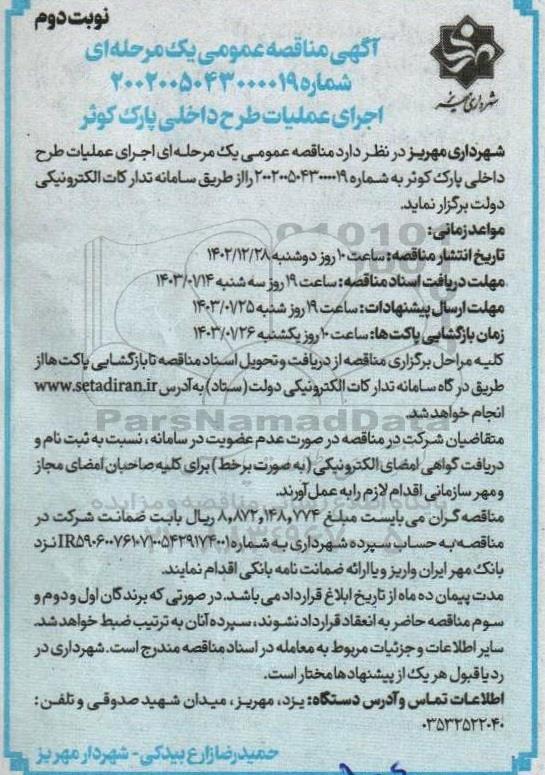 نوبت دوم
شهرداری مهریز
آگهی مناقصه عمومی یک مرحله‌ای
شماره ۲۰۰۲۰۰۵۰۴۳۰۰۰۰۱۹
اجرای عملیات طرح داخلی پارک کوثر
شهرداری مهریز در نظر دارد مناقصه عمومی یک مرحله‌ای اجرای عملیات طرح
داخلی پارک کوثر به شماره ۲۰۰۲۰۰۵۰۴۳۰۰۰۰۱۹ را از طریق سامانه تدارکات الکترونیکی
دولت برگزار نماید.
مواعد زمانی:
تاریخ انتشار مناقصه: ساعت ۱۰ روز دوشنبه ۱۴۰۲/۱۲/۲۸
مهلت دریافت اسناد مناقصه: ساعت ۱۹ روز سه شنبه ۱۴۰۳/۰۱/۱۴
مهلت ارسال پیشنهادات: ساعت ۱۹ روز شنبه ۱۴۰۳/۰۱/۲۵
زمان بازگشایی پاکت‌ها: ساعت ۱۰ روز یکشنبه ۱۴۰۳/۰۱/۲۶
کلیه مراحل برگزاری مناقصه از دریافت و تحویل اسناد مناقصه تا بازگشایی پاکت‌ها از
طریق درگاه سامانه تدارکات الکترونیکی دولت (ستاد) به آدرس www.setadiran.ir
انجام خواهد شد.
ParsNamadData
متقاضیان شرکت در مناقصه در صورت عدم عضویت در سامانه، نسبت به ثبت نام و
دریافت گواهی امضای الکترونیکی (به صورت برخط) برای کلیه صاحبان امضای مجاز
و مهر سازمانی اقدام لازم را به عمل آورند.
مناقصه گران می‌بایست مبلغ ۸,۸۷۲,۱۴۸,۷۷۴ ریال بابت ضمانت شرکت در
مناقصه به حساب سپرده شهرداری به شماره IR۵۹۰۶۰۰۷۶۱۰۷۱۰۰۵۴۲۹۱۷۴۰۰۱ نزد
بانک مهر ایران واریز و یا ارائه ضمانت نامه بانکی اقدام نمایند.
مدت پیمان ده ماه از تاریخ ابلاغ قرارداد می‌باشد. در صورتی که برندگان اول و دوم و
سوم مناقصه حاضر به انعقاد قرارداد نشوند، سپرده آنان به ترتیب ضبط خواهد شد.
سایر اطلاعات و جزئیات مربوط به معامله در اسناد مناقصه مندرج است. شهرداری در
رد یا قبول هر یک از پیشنهادها مختار است.
اطلاعات تماس و آدرس دستگاه: یزد، مهریز، میدان شهید صدوقی و تلفن:
۰۳۵۳۲۵۲۲۰۴۰
حمیدرضا زارع بیدکی - شهردار مهریز